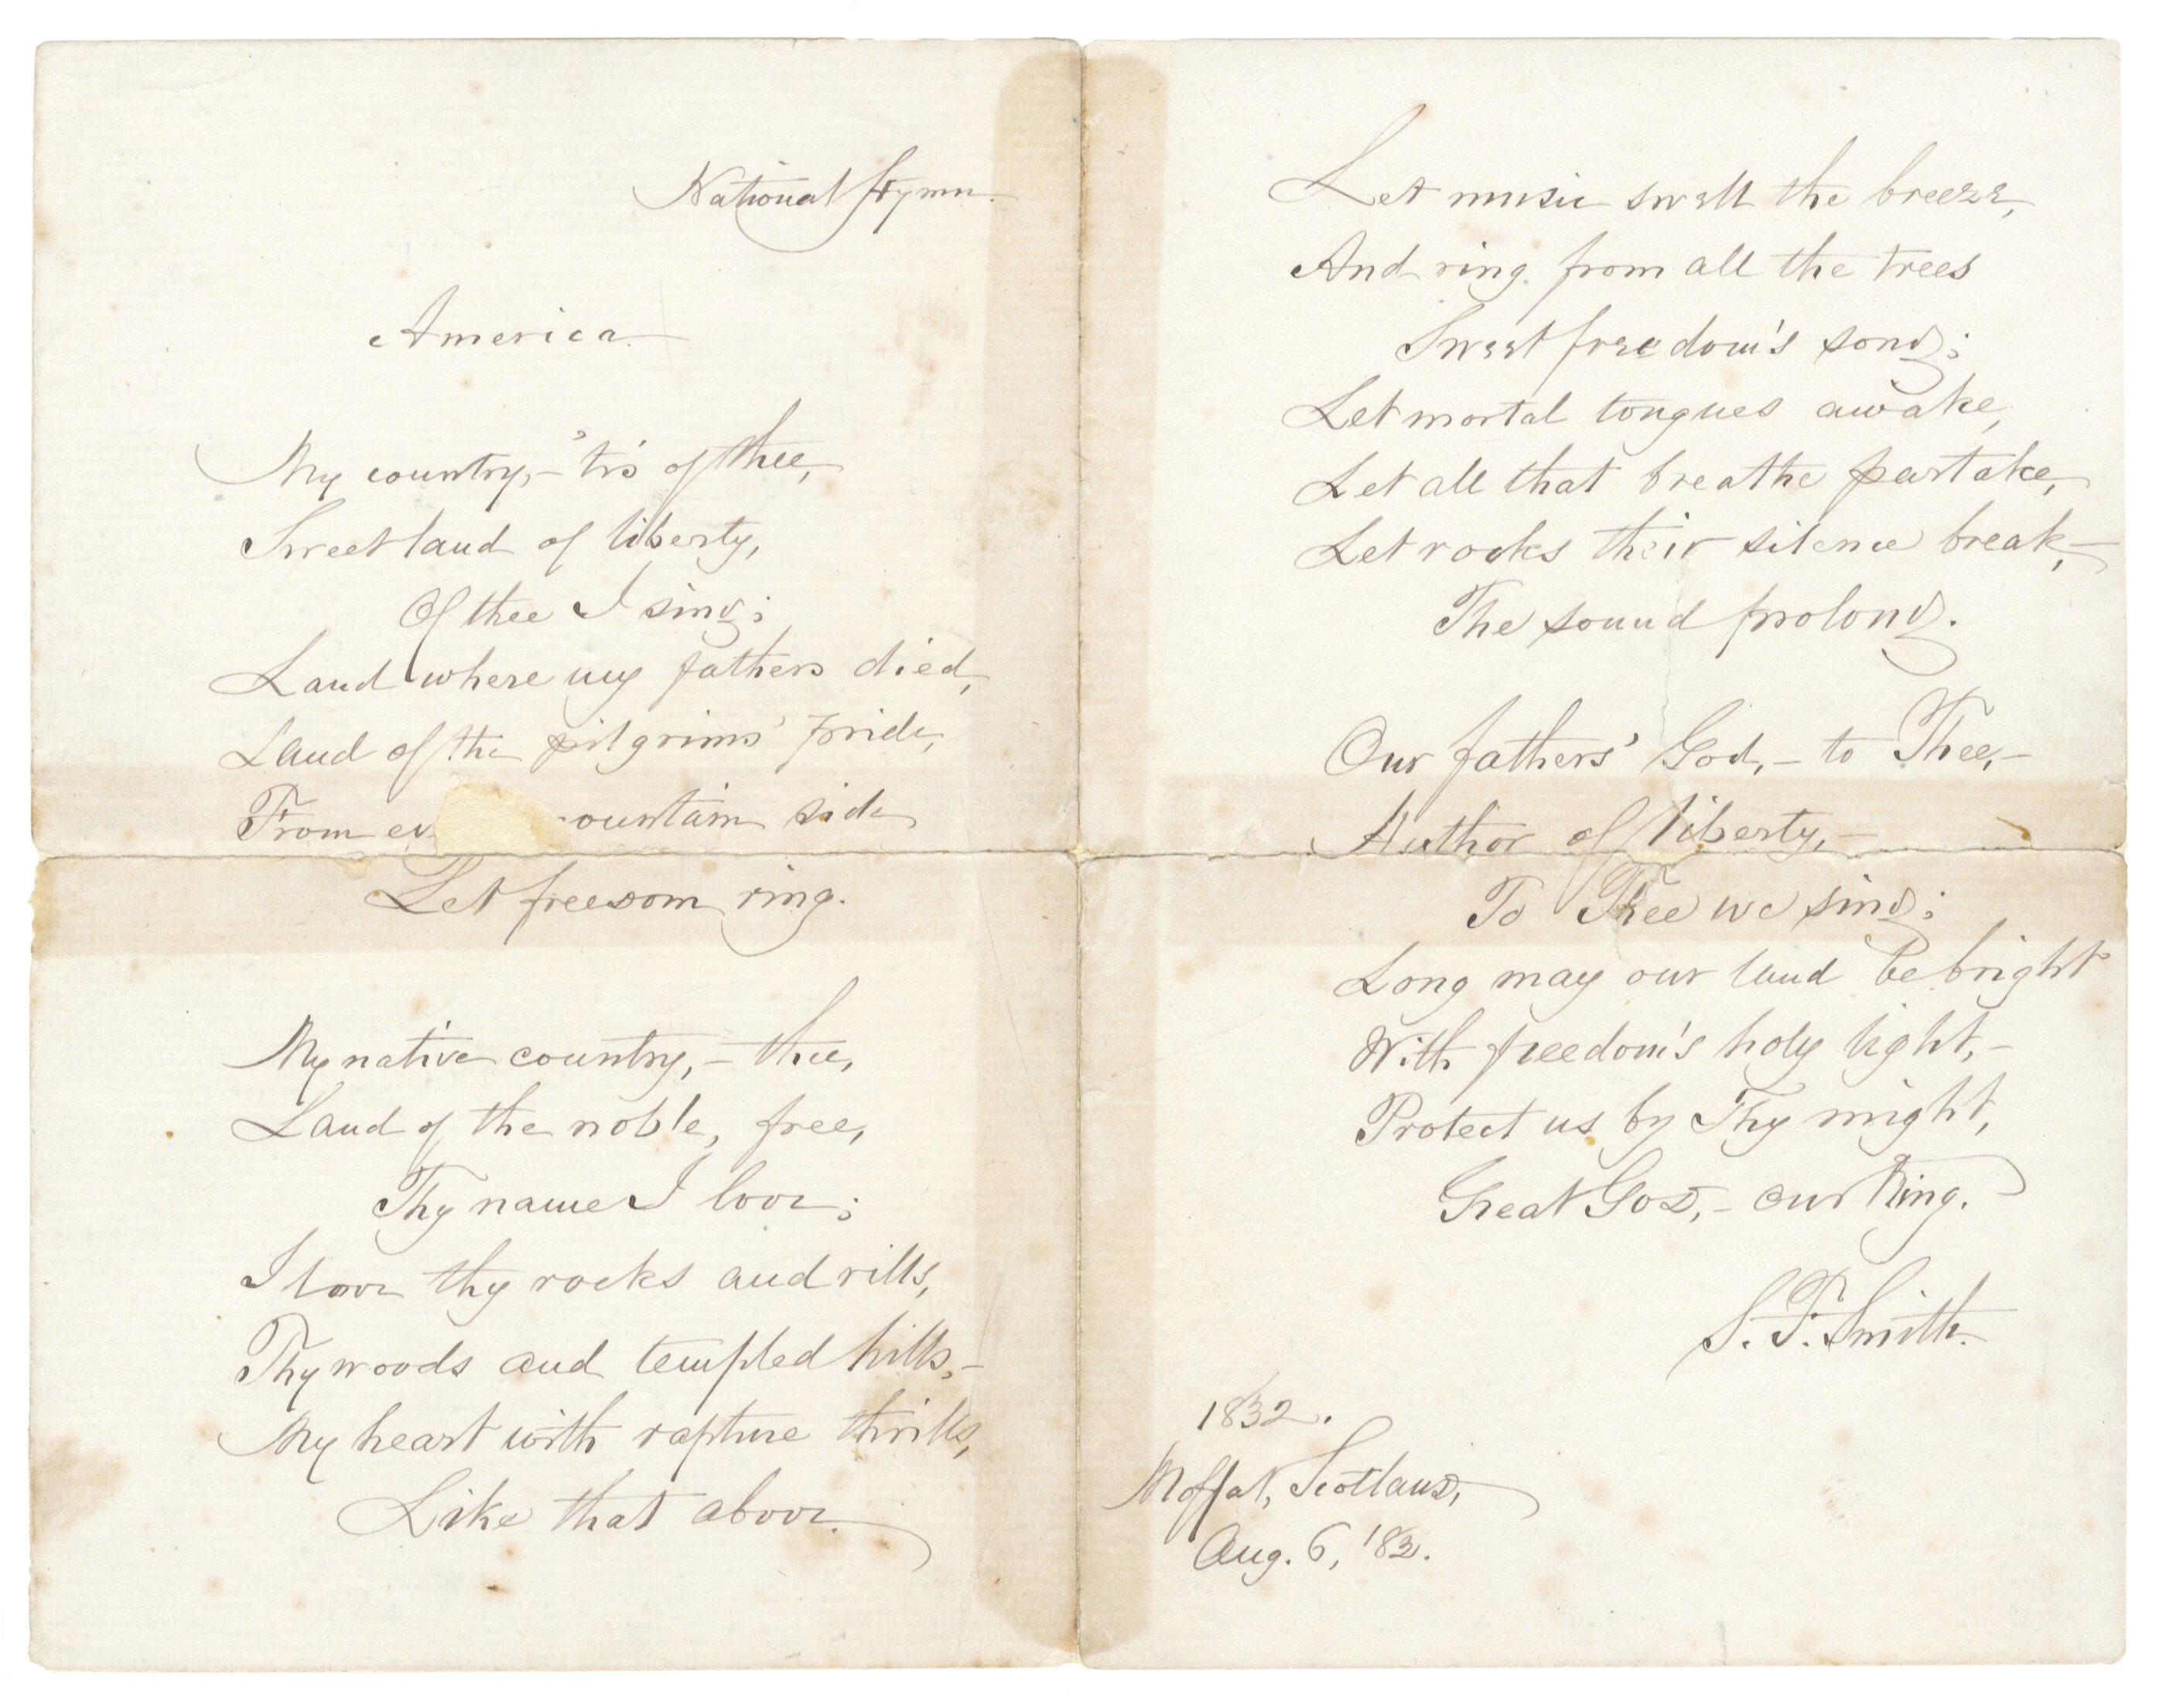 National Hymn.
America.
My country,- 'tis of thee,
Sweet land of liberty,
Of thee I sing;
Land where my fathers died,
Land of the pilgrims' pride,
From ev ountain side
Let freedom ring.
My native country,- thee,
Land of the noble, free,
Thy name I love;
I love thy rocks and rills,
Thy woods and templed hills,-
My heart with rapture thrills,
Like that above.
Let music swell the breeze,
And ring from all the trees
Sweet freedom's song;
Let mortal tongues awake,
Let all that breathe partake,
Let rocks their silence break,-
The sound prolong.
Our fathers' God,- to Thee,-
Author of liberty,-
To Thee we sing;
Long may our land be bright
With freedom's holy light,-
Protect us by Thy might,
Great God,- our King.
S. F. Smith.
1832.
Moffat, Scotland,
Aug. 6, '82.